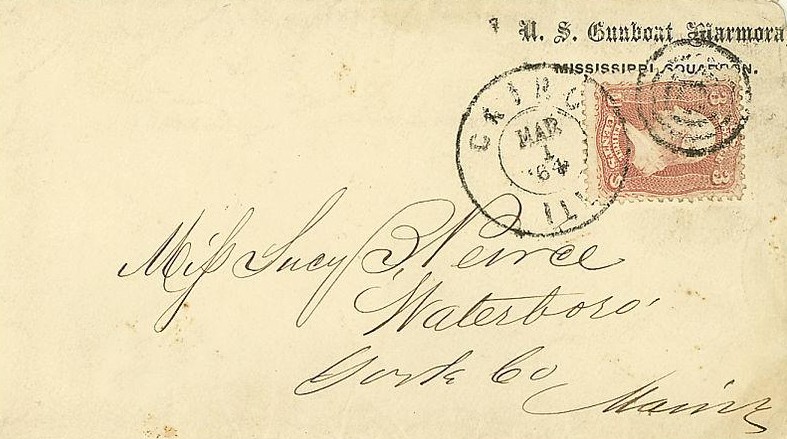 U. S. Gunboat Marmora,
MISSISSIPPI SQUADRON.
CAIRO
MAR
1
'64
ILL
3 3
Miss Lucy B. Peirce
Waterboro'
York Co
Maine